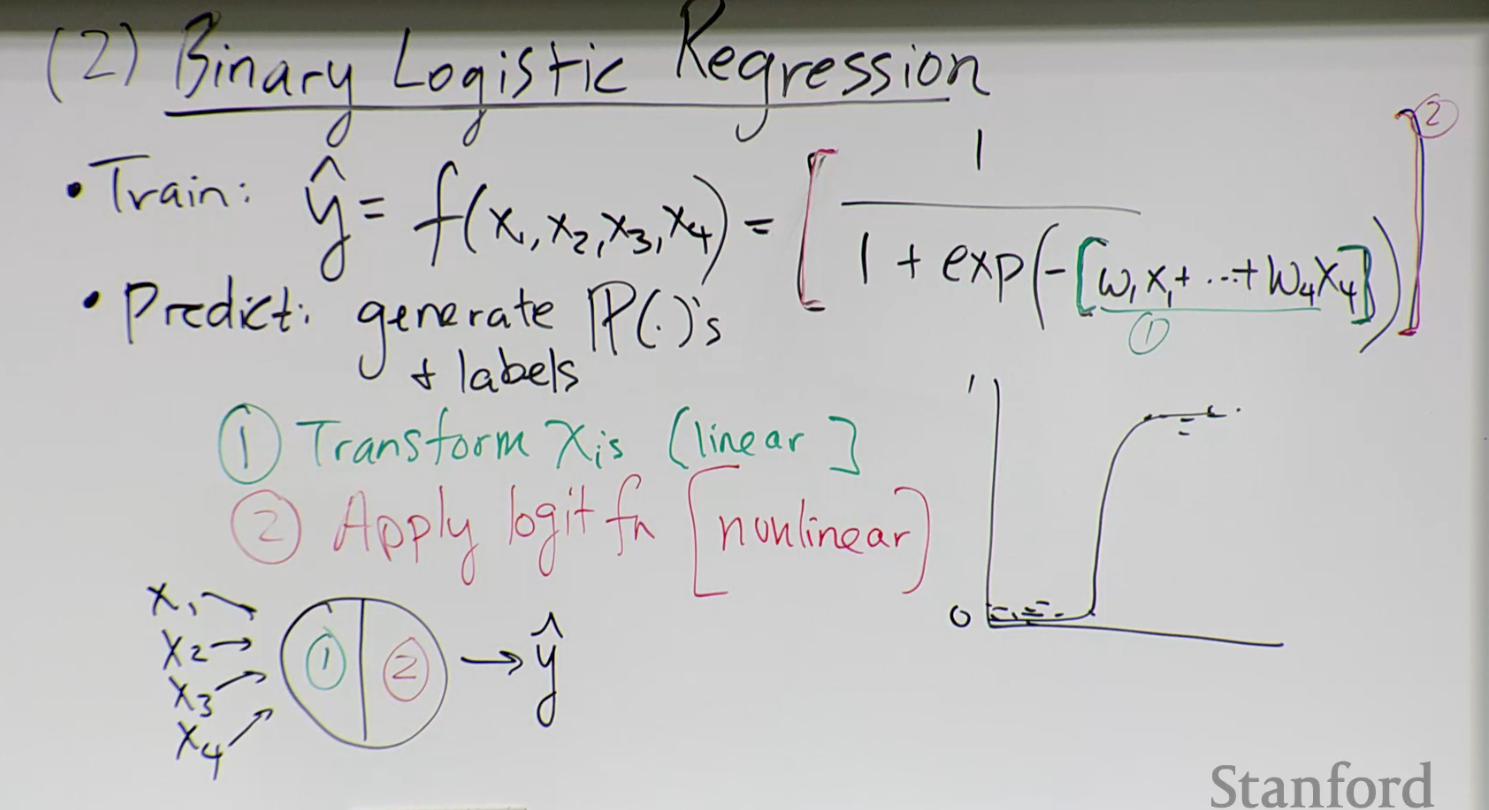 (2) Binary Logistic Regression
• Train: ŷ = f(x₁, x₂, x₃, x₄) = [ 1 / (1 + exp(-[w₁x₁ + ... + w₄x₄])) ] ②
①
• Predict: generate ℙ(.)'s
+ labels
① Transform Xis (linear]
② Apply logit fn [nonlinear]
1
0
x₁
x₂
x₃
x₄
① ② → ŷ
Stanford